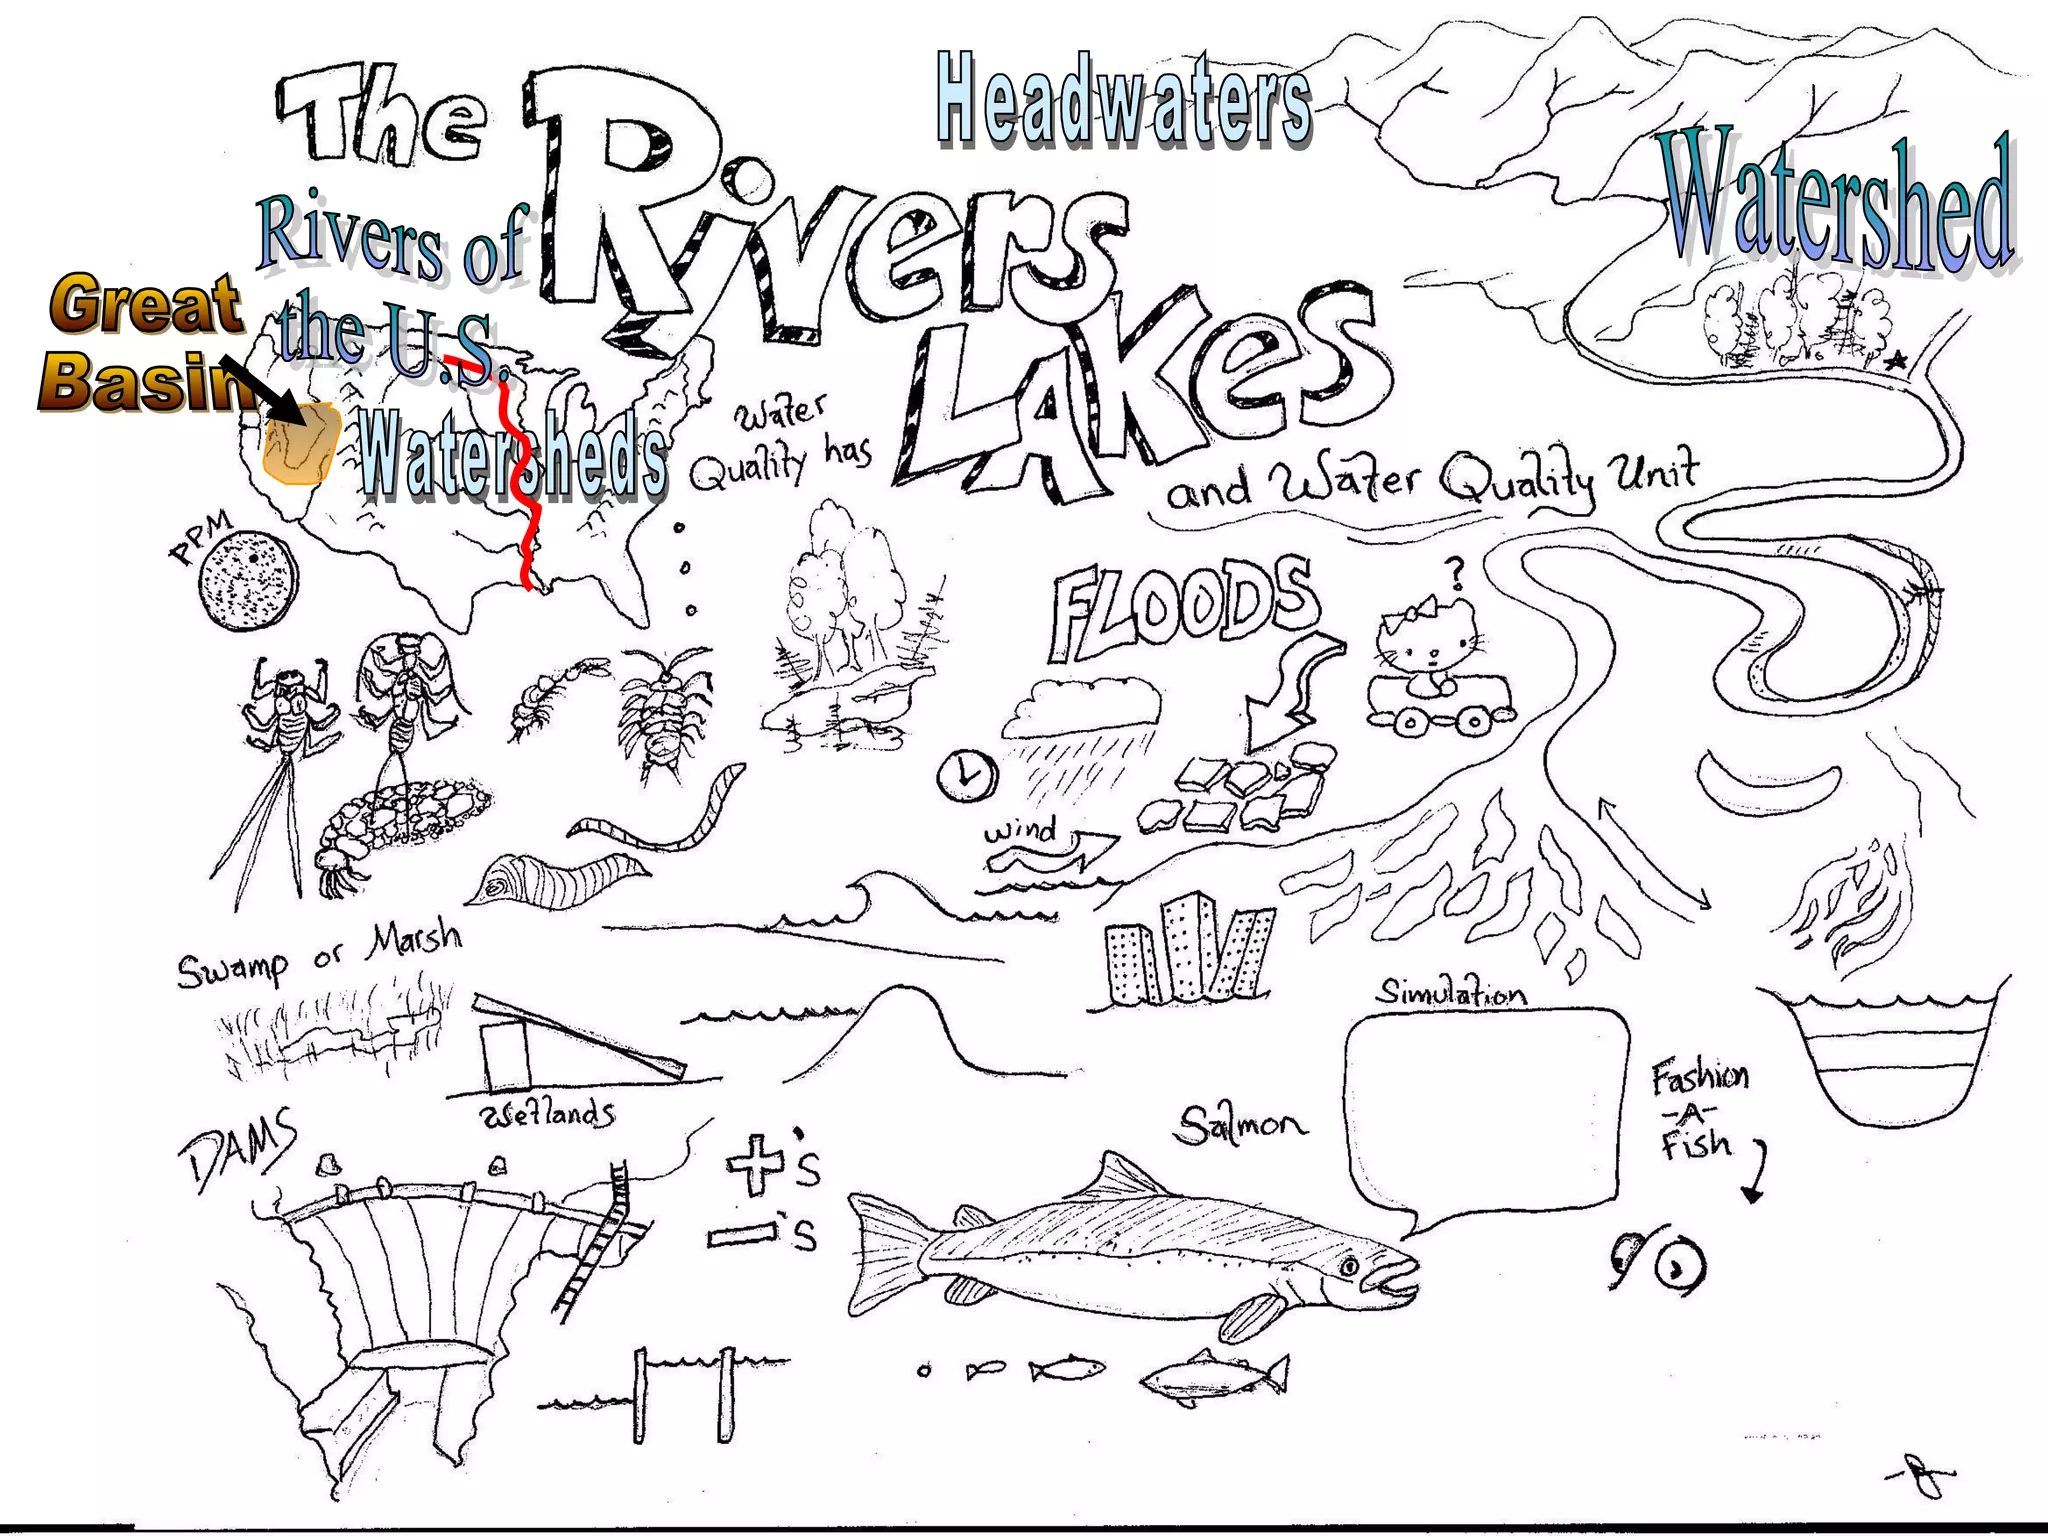 The
Rivers
Lakes
and Water Quality Unit
Headwaters
Watershed
Rivers of
the U.S.
Great
Basin
Watersheds
Water
Quality has
PPM
FLOODS
?
wind
Swamp or Marsh
Wetlands
Simulation
Salmon
Fashion
-A-
Fish
DAMS
+'s
-'s